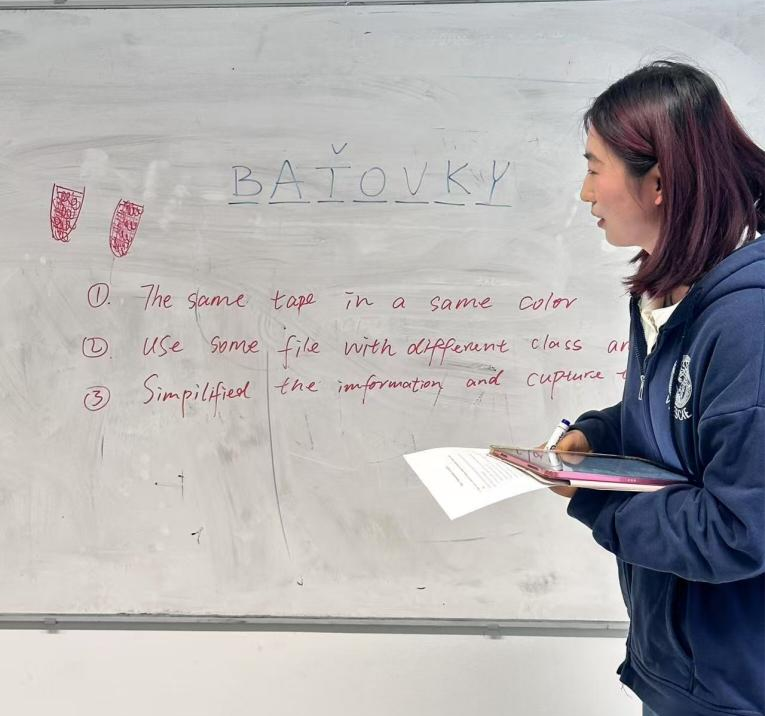 BAŤOVKY
①. The same tape in a same color
② Use some file with different class
③ Simpilified the imformation and cupture